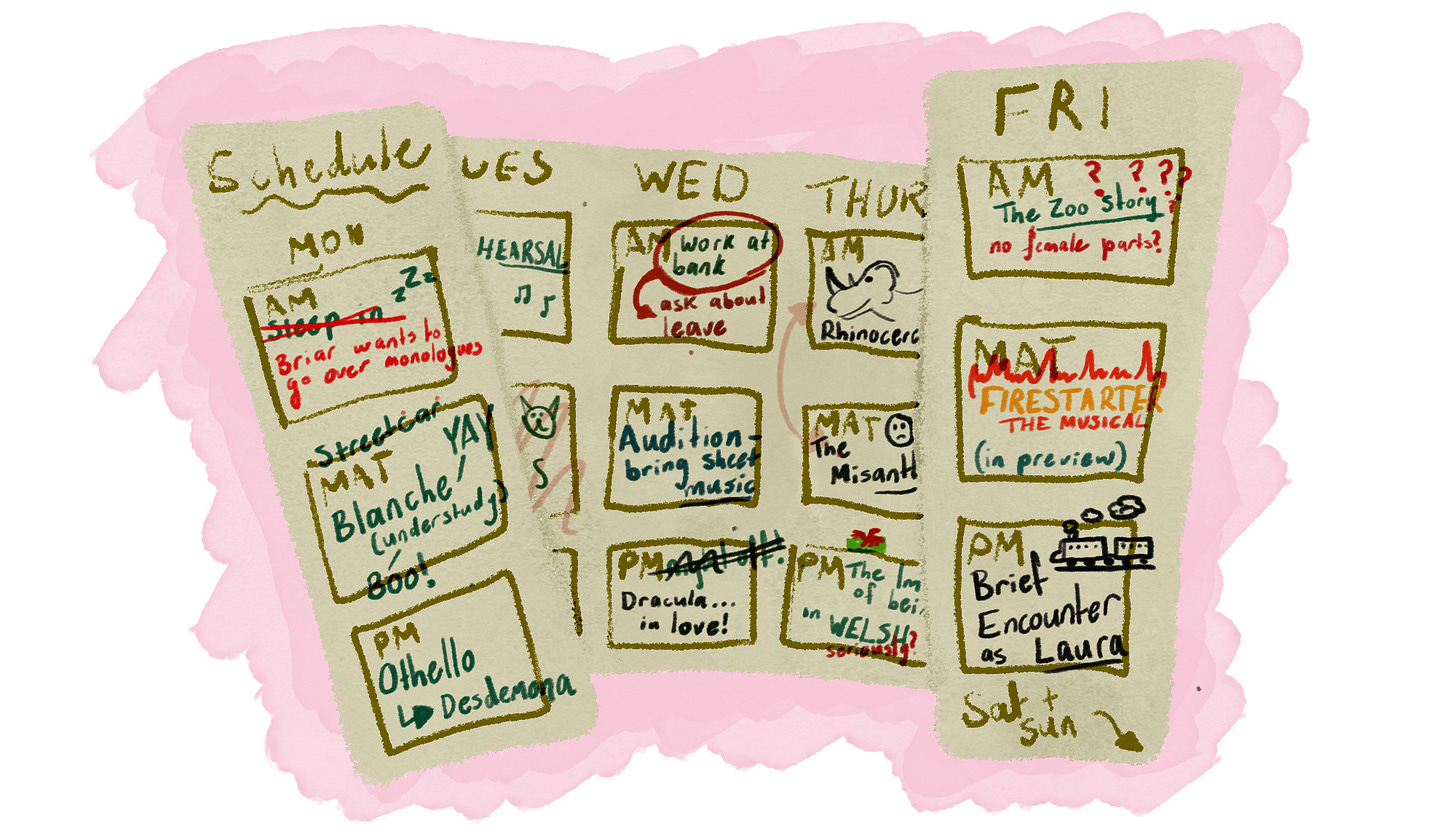 Schedule
MON
AM
Sleep in zzz
Briar wants to
go over monologues
Streetcar
MAT
YAY
Blanche
(understudy)
BOO!
PM
Othello
Desdemona
UES
HEARSAL
S
WED
AM
Work at
bank
ask about
leave
MAT
Audition-
bring sheet
music
PM
Dracula...
in love!
THUR
AM
Rhinocero
MAT
The
Misanth
PM
The Im
of bei
in WELSH?
seriously?
FRI
AM ? ? ? ?
The Zoo Story ?
no female parts?
MAT
FIRESTARTER
THE MUSICAL
(in preview)
PM
Brief
Encounter
as Laura
Sat +
sun